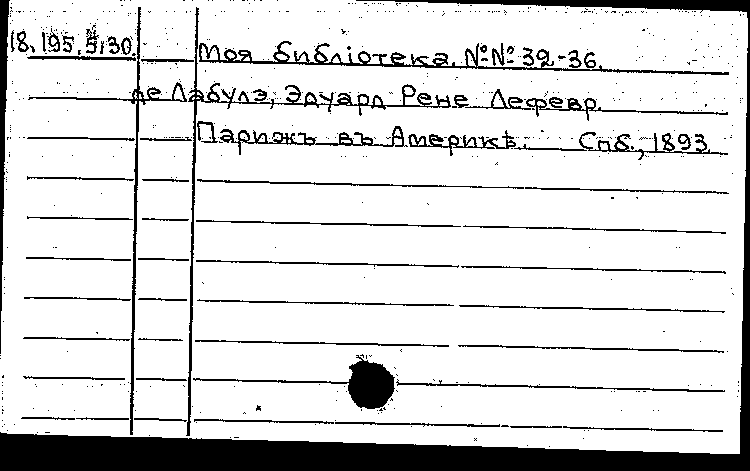 18.195.5.30 Моя библіотека. №№ 32-36.
де Лабулэ, Эдуард Рене Лефевр.
Парижъ въ Америкѣ. Спб., 1893